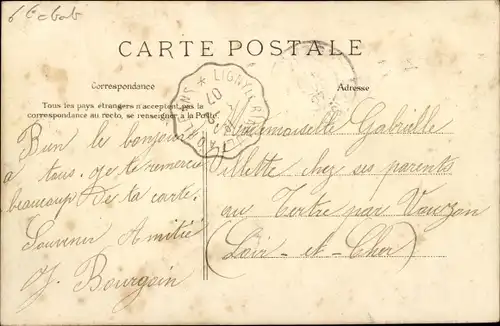 CARTE POSTALE
Correspondance
Adresse
Tous les pays étrangers n'acceptent pas la
correspondance au recto, se renseigner à la Poste.
Bien le bonjour
à tous. Je te remercie
beaucoup de ta carte.
Souvenir Amitié
J. Bourgoin
Mademoiselle Gabrielle
Villette chez ses parents
au Tertre par Vouzon
(Loir-et-Cher)
LIGNY-LE-RI
07